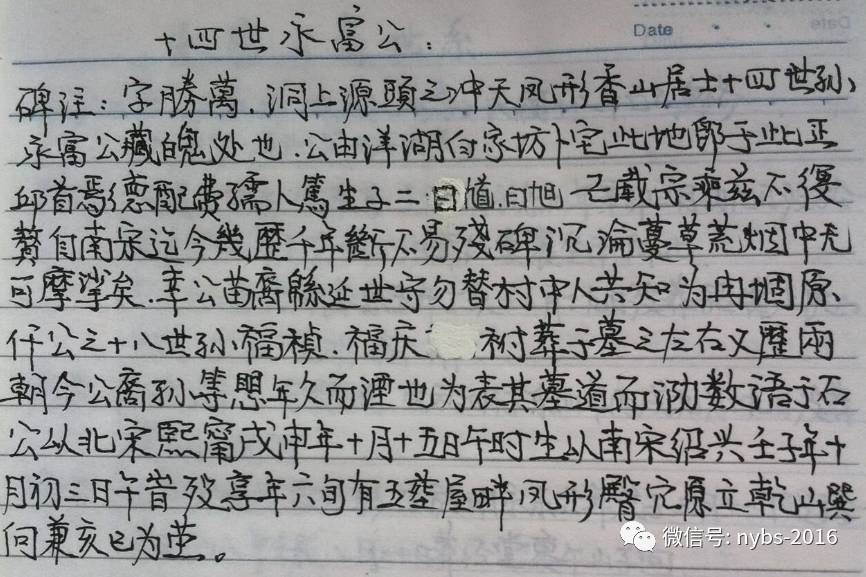 Date
十四世永富公：
碑注：字勝萬．洞上源頭之冲天凤形香山居士十四世孙、
永富公藏魄处也．公由洋湖付家坊卜宅此地即于此正
邱首焉德配費孺人篤生子二曰馗．曰旭 已載宗乘兹不復
贅自南宋迄今幾歷千年断不易殘碑沉淪蔓草荒烟中无
可摩挲矣．幸公苗裔緜延世守勿替村中人共知为冉堌原、
仟公之十八世孙福祯．福庆 祔葬于墓之左右又歷兩
朝今公裔孙等思年久而湮也为表其墓道而泐数语于石
公从北宋熙甯戊申年十月十五日午时生从南宋绍兴壬子年十
月初三日午昔殁享年六旬有五塟屋畔凤形臀穴原立乾山巽
向兼亥巳为茔。
微信号: nybs-2016